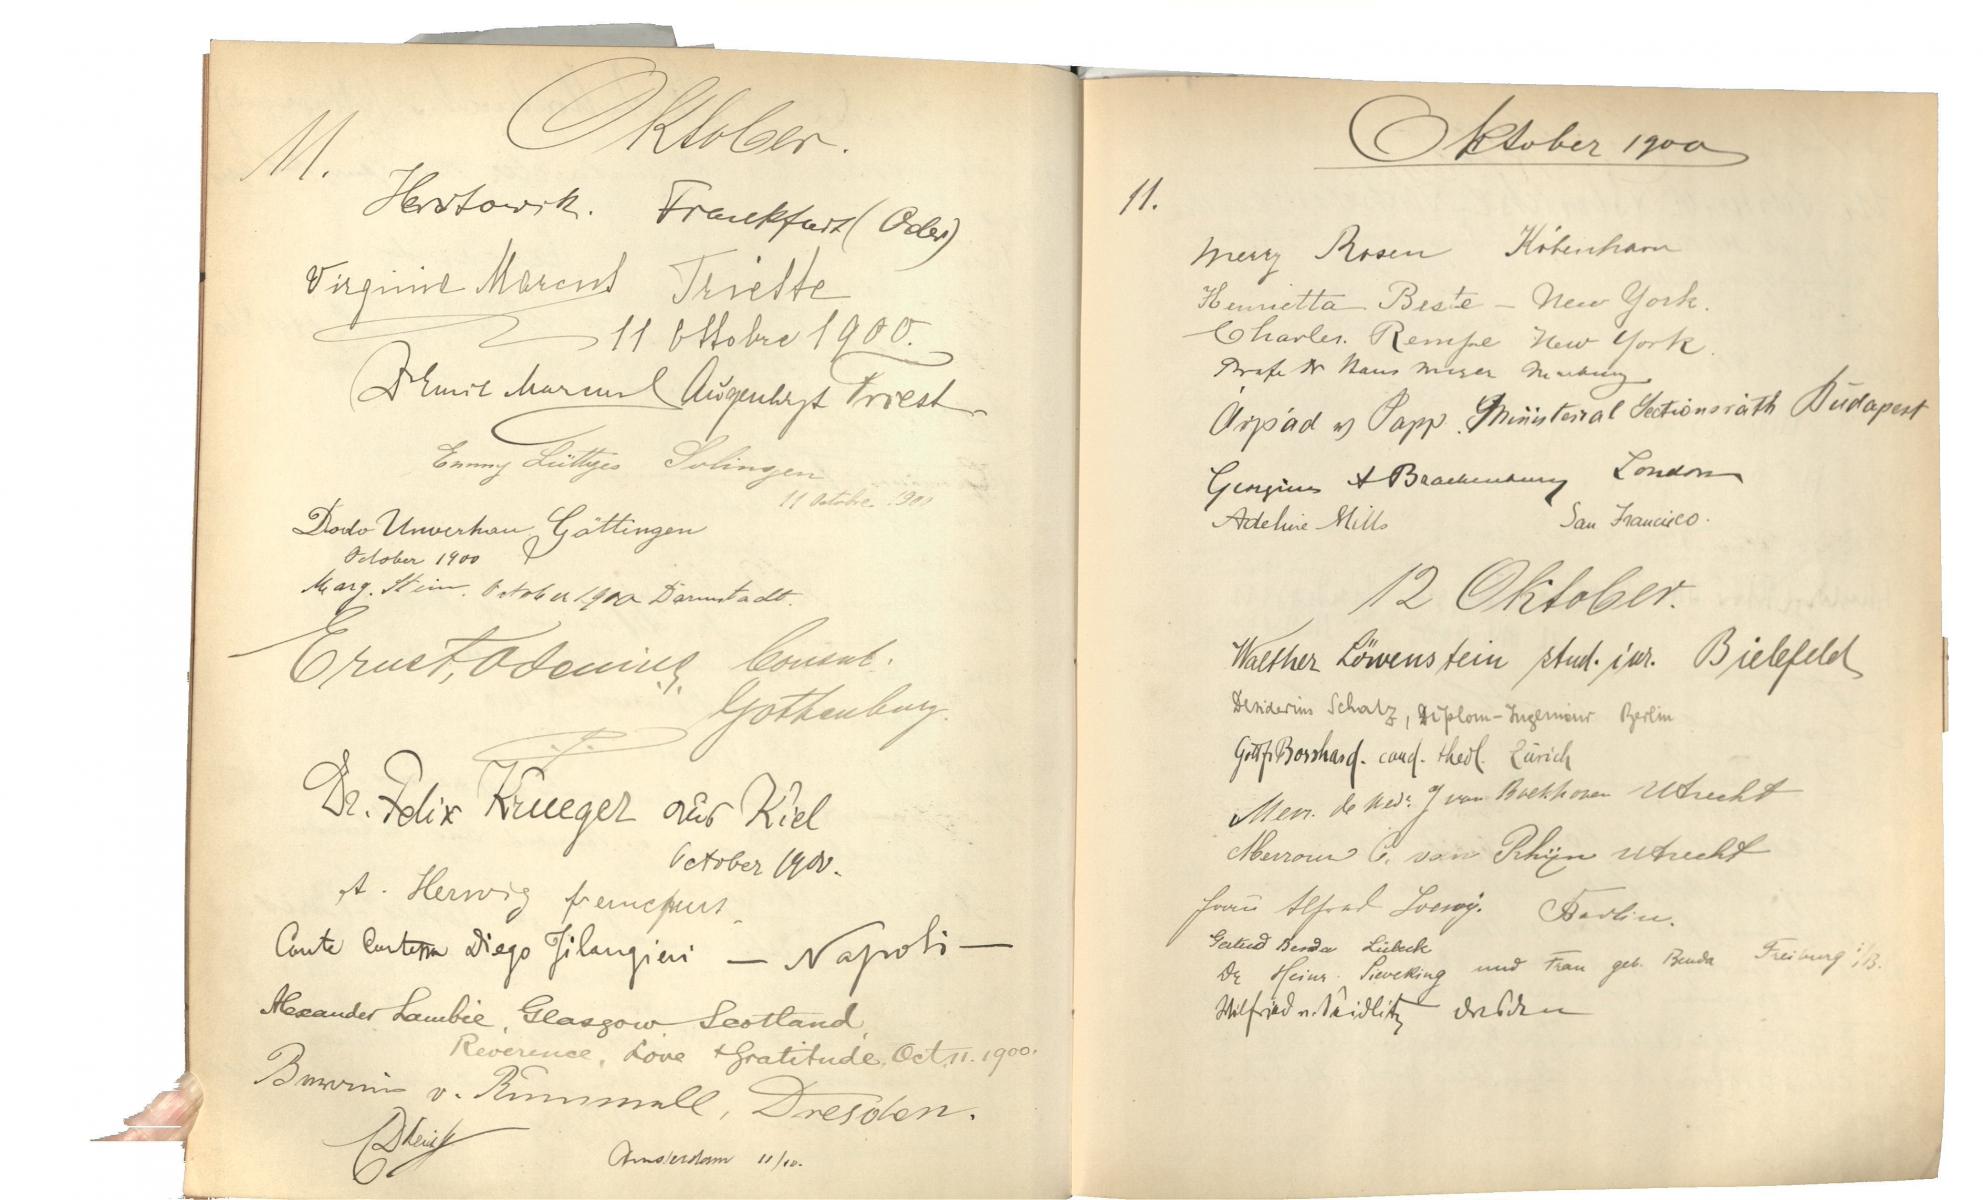 Oktober.
11.
Frankfurt (Oder)
Virginie Marcus Trieste
11 Ottobre 1900.
Dr Emil Marcus Augenarzt Triest
Emmy Lüttges Solingen
11 October 1900
Dodo Unverhau, Göttingen
October 1900
Marg. Stein. October 1900 Darmstadt.
Ernst, Consul.
Gothenburg.
Dr. Felix Krueger aus Kiel
October 1900.
A. Herwig
Conte Contessa Diego Filangieri — Napoli —
Alexander Lambie, Glasgow, Scotland,
Reverence, Love + Gratitude, Oct. 11. 1900.
v. Dresden.
Amsterdam 11/10.
Oktober 1900
11.
Merry Rosen Köbenhavn
Henrietta Beste – New York.
Charles. Rempe New York.
Profe Dr Hans Meyer Marburg
Árpád v Papp. Ministerial Sectionsrath Budapest
A Brackenbury London
Adeline Mills San Francisco.
12 Oktober.
Walther Löwenstein stud. jur. Bielefeld
Desiderius Schatz, Diplom-Ingenieur Berlin
Gottfr Bosshard. cand. theol. Zürich
Mevr. de Wedr. J van Boekhoven Utrecht
Mevrouw C. van Rhijn Utrecht
Frau Alfred Loewy. Berlin.
Gertrud Benda Lübeck
Dr Heinr. Sieveking und Frau geb. Benda Freiburg i/B.
Wilfried v. Seidlitz Dresden